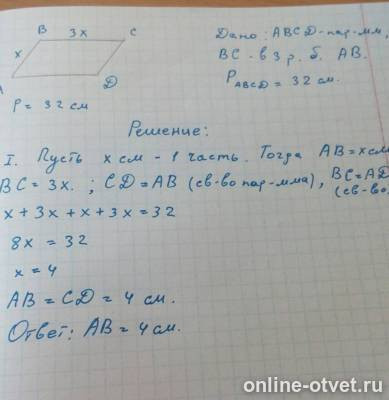 B 3x C
x
A
D
P = 32 см
Дано: ABCD-пар-мм,
BC - в 3 р. б. AB.
P ABCD = 32 см.
Решение:
I. Пусть x см - 1 часть. Тогда AB = x см
BC = 3x. ; CD = AB (св-во пар-мма), BC = AD
(св-во.
x + 3x + x + 3x = 32
8x = 32
x = 4
AB = CD = 4 см.
Ответ: AB = 4 см.
online-otvet.ru